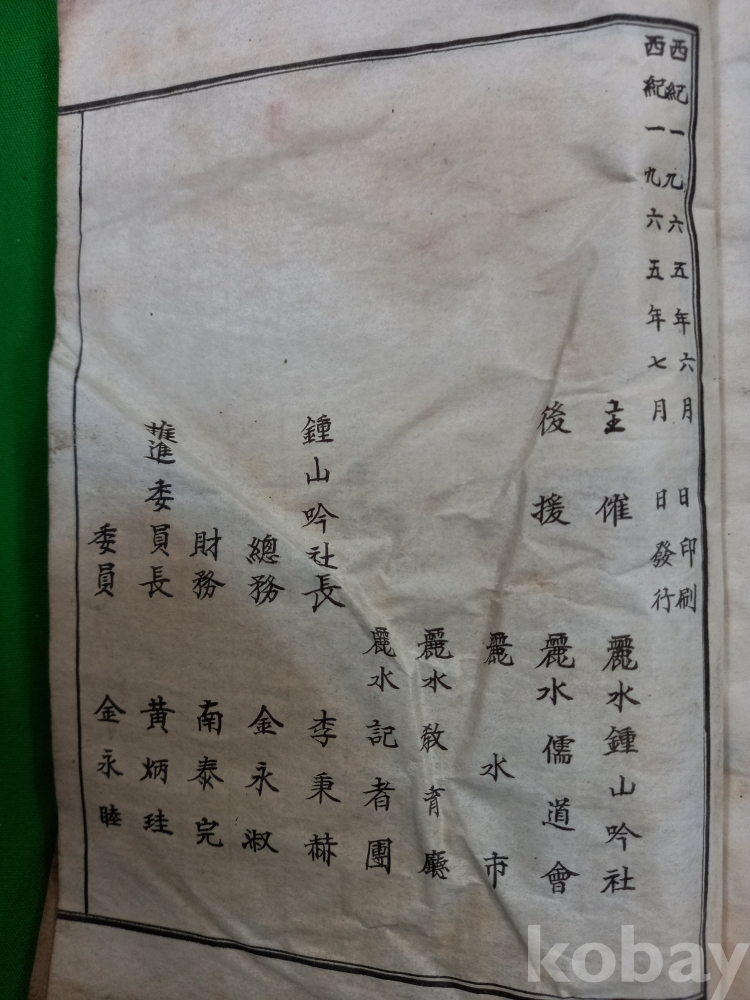 西紀一九六五年六月 日印刷
西紀一九六五年七月 日發行
主催 麗水鍾山吟社
後援 麗水儒道會
麗水市
麗水敎育廳
麗水記者團
鍾山吟社長 李秉赫
總務 金永淑
財務 南泰完
推進委員長 黄炳珪
委員 金永睦
kobay